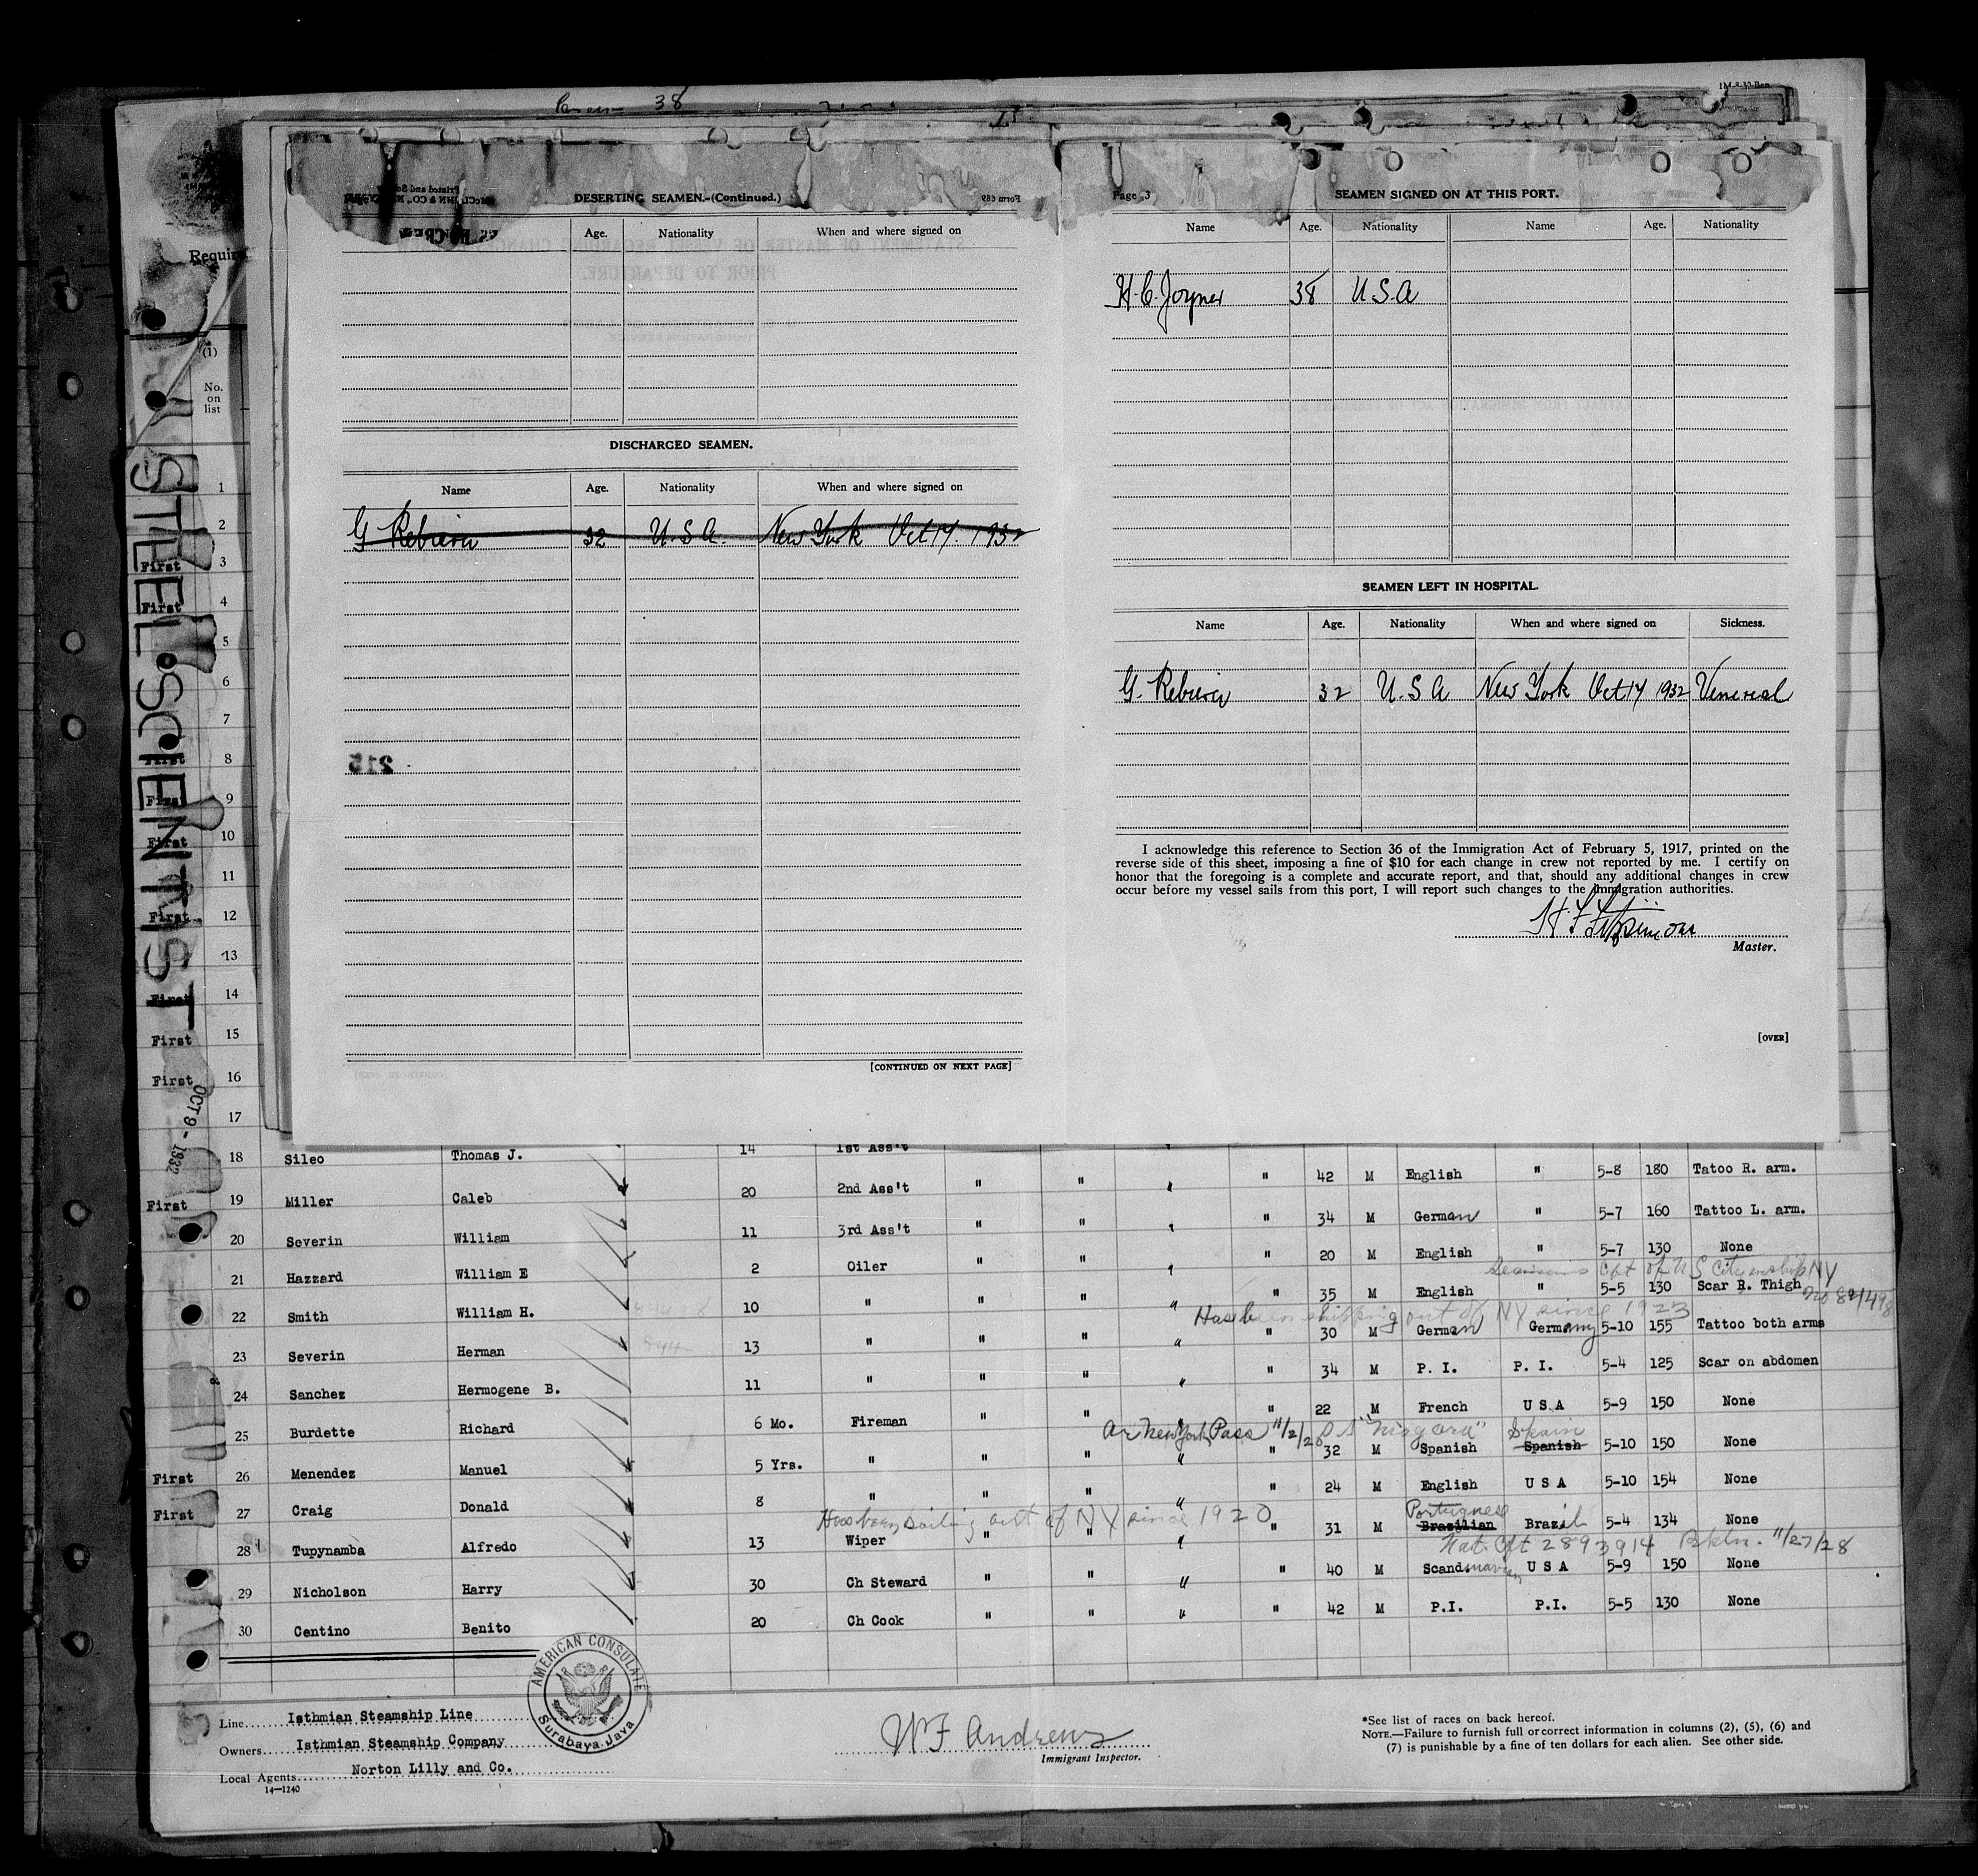 Crew 38
DESERTING SEAMEN.-(Continued.)
Form 689
Age. Nationality When and where signed on
DISCHARGED SEAMEN.
Name Age. Nationality When and where signed on
G 32 U.S.A. New York Oct 14. 1932
215
[CONTINUED ON NEXT PAGE]
Page 3
SEAMEN SIGNED ON AT THIS PORT.
Name Age. Nationality Name Age. Nationality
H.C. Joyner 38 U.S.A
SEAMEN LEFT IN HOSPITAL.
Name Age. Nationality When and where signed on Sickness.
G. 32 U.S.A New York Oct 14 1932 Venereal
I acknowledge this reference to Section 36 of the Immigration Act of February 5, 1917, printed on the
reverse side of this sheet, imposing a fine of $10 for each change in crew not reported by me. I certify on
honor that the foregoing is a complete and accurate report, and that, should any additional changes in crew
occur before my vessel sails from this port, I will report such changes to the Immigration authorities.
Master.
[OVER]
STEEL SCIENTIST
OCT 9 - 1932
(1)
No.
on
list
1
2
First 3
First 4
5
6
7
First 8
First 9
First 10
11
First 12
13
First 14
First 15
First 16
17
18 Sileo Thomas J. 14 1st Ass't " 42 M English " 5-8 180 Tatoo R. arm.
First 19 Miller Caleb 20 2nd Ass't " " " " 34 M German " 5-7 160 Tattoo L. arm.
20 Severin William 11 3rd Ass't " " " " 20 M English " 5-7 130 None
Seamans Cft of US Citizenship NY
21 Hazzard William E 2 Oiler " " " " 35 M English " 5-5 130 Scar R. Thigh
Has been shipping out of NY since 1923
22 Smith William H. 10 " " " " " 30 M German Germany 5-10 155 Tattoo both arms
23 Severin Herman 13 " " " " " 34 M P. I. P. I. 5-4 125 Scar on abdomen
24 Sanchez Hermogene B. 11 " " " " " 22 M French U S A 5-9 150 None
Ar New York Pass 11/2/20 SS "Niagara" Spain
25 Burdette Richard 6 Mo. Fireman " " " " 32 M Spanish Spanish 5-10 150 None
First 26 Menendez Manuel 5 Yrs. " " " " " 24 M English U S A 5-10 154 None
Has been sailing out of NY since 1920 Portuguese
First 27 Craig Donald 8 " " " " " 31 M Brazilian Brazil 5-4 134 None
Nat. Cft 2893914 Bkln. 11/27/28
28 Tupynamba Alfredo 13 Wiper " " " " 40 M Scandinavian U S A 5-9 150 None
29 Nicholson Harry 30 Ch Steward " " " " 42 M P.I. P.I. 5-5 130 None
30 Centino Benito 20 Ch Cook " " " "
AMERICAN CONSULATE
Surabaya, Java
Line Isthmian Steamship Line
Owners Isthmian Steamship Company
Local Agents Norton Lilly and Co.
14—1240
W F Andrews
Immigrant Inspector.
*See list of races on back hereof.
NOTE.—Failure to furnish full or correct information in columns (2), (5), (6) and
(7) is punishable by a fine of ten dollars for each alien. See other side.